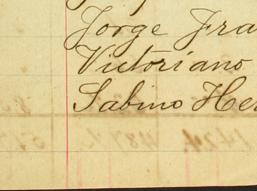 Jorge Fra
Victoriano
Sabino Her